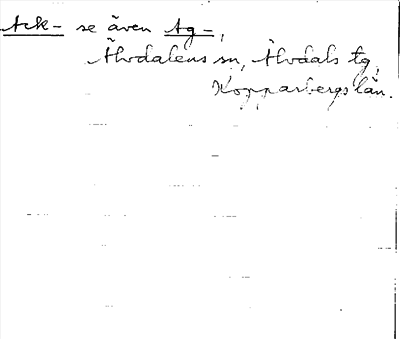 Ack- se även Ag-,
Älvdalens sn, Älvdals tg,
Kopparbergs län.